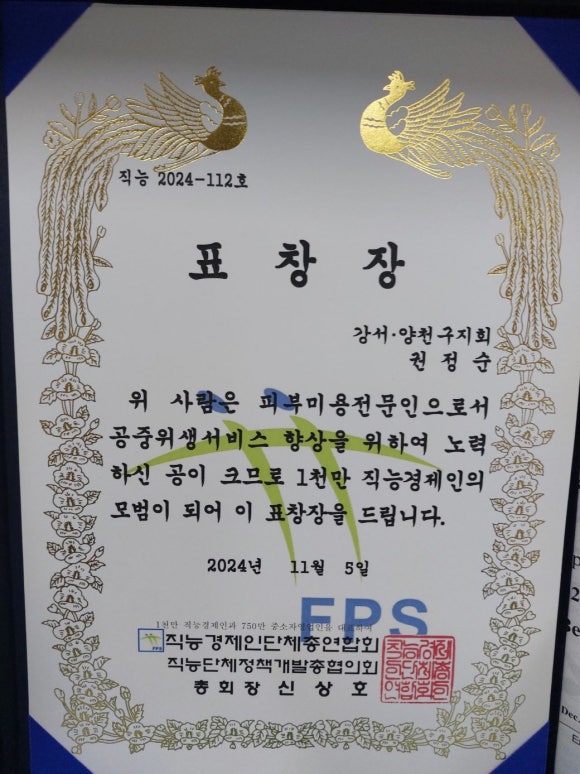 직능 2024-112호
표 창 장
강서·양천구지회
권 정 순
위 사람은 피부미용전문인으로서
공중위생서비스 향상을 위하여 노력
하신 공이 크므로 1천만 직능경제인의
모범이 되어 이 표창장을 드립니다.
2024년 11월 5일
FPS
1천만 직능경제인과 750만 중소자영업인을 대표하여
FPS 직능경제인단체총연합회
직능단체정책개발총협의회
총 회 장 신 상 호